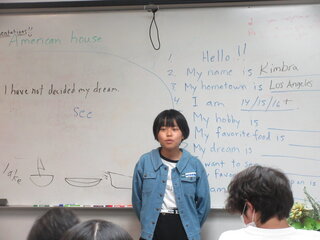 American house
I have not decided my dream.
see
Lake
Hello!!
2. My name is Kimbra
3. My hometown is Los Angeles
4. I am 14/15/16+
My hobby is
My favorite food is
My dream is
want to see